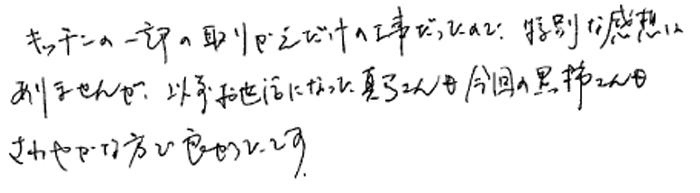 キッチンの一部の取りかえだけの工事だったので、特別な感想は
ありませんが、以前お世話になった真弓さんも今回の黒柳さんも
さわやかな方で良かったです。